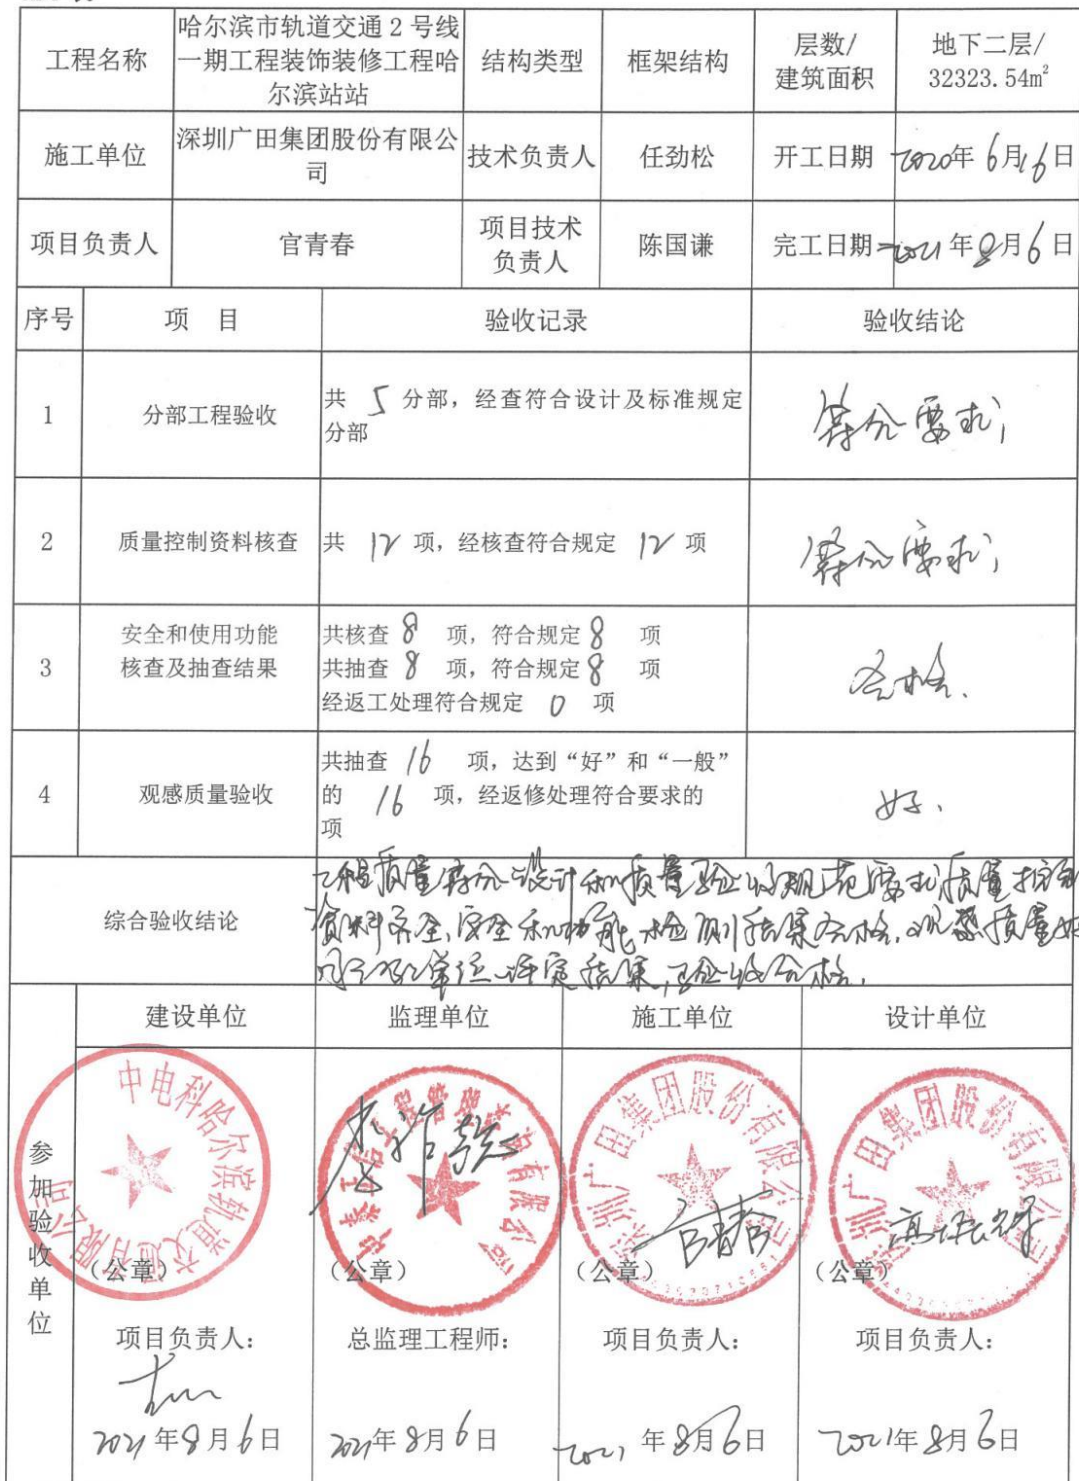 工程名称
哈尔滨市轨道交通2号线
一期工程装饰装修工程哈
尔滨站站
结构类型
框架结构
层数/
建筑面积
地下二层/
32323.54m²
施工单位
深圳广田集团股份有限公
司
技术负责人
任劲松
开工日期
2020年6月16日
项目负责人
官青春
项目技术
负责人
陈国谦
完工日期
2021年8月6日
序号
项 目
验收记录
验收结论
1
分部工程验收
共 5 分部，经查符合设计及标准规定
分部
符合要求;
2
质量控制资料核查
共 12 项，经核查符合规定 12 项
符合要求;
3
安全和使用功能
核查及抽查结果
共核查 8 项，符合规定 8 项
共抽查 8 项，符合规定 8 项
经返工处理符合规定 0 项
合格.
4
观感质量验收
共抽查 16 项，达到“好”和“一般”
的 16 项，经返修处理符合要求的
项
好.
综合验收结论
工程质量符合设计和质量验收规范要求,质量控制
资料齐全,安全和功能检测结果合格,观感质量好
同意单位评定结果,验收合格.
参加验收单位
建设单位
监理单位
施工单位
设计单位
中电科哈尔滨轨道交通有限公司
工程管理 有限公司
深圳广田集团股份有限公司
深圳广田集团股份有限公司
官青春
（公章）
（公章）
（公章）
（公章）
项目负责人：
总监理工程师：
项目负责人：
项目负责人：
2021年8月6日
2021年8月6日
2021年8月6日
2021年8月6日